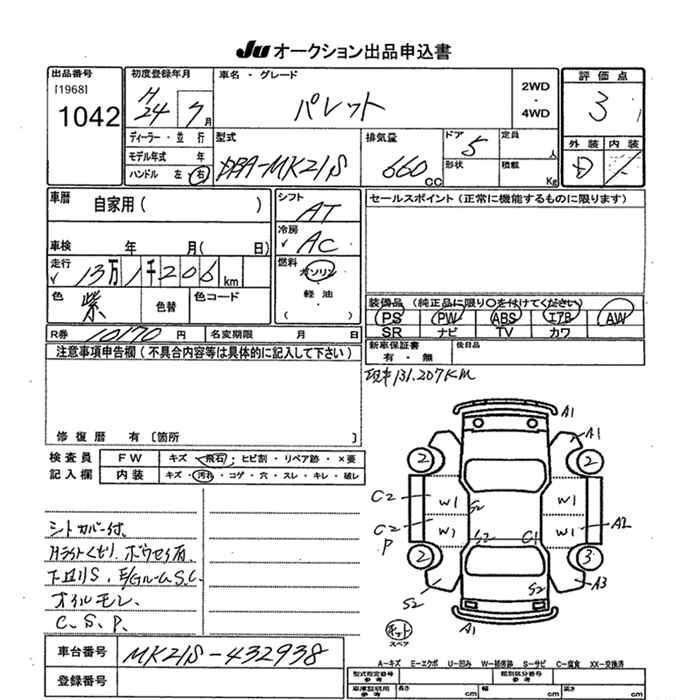 JU オークション出品申込書
出品番号 初度登録年月 車名・グレード 評価点
[1968] H24 7月 パレット 2WD・4WD 3
1042
ディーラー・並行 型式 排気量 ドア 定員 外装 内装
モデル年式 年 DBA-MK21S 660cc 5 人 D
ハンドル 左 右 形状 積載 Kg
車歴 自家用( ) シフト AT セールスポイント(正常に機能するものに限ります)
車検 年 月( 日) 冷房 AC
走行 13万1千206km 燃料 ガソリン
軽油
( )
色 紫 色替 色コード 装備品(純正品に限り○を付けてください)
PS PW ABS エアB AW
SR ナビ TV カワ
R券 10170円 名変期限 月 日 新車保証書 後日品
有・無
注意事項申告欄(不具合内容等は具体的に記入して下さい)
現車131.207KM
修復歴 有〔箇所 〕
検査員 FW キズ・飛石・ヒビ割・リペア跡・×要
記入欄 内装 キズ・汚れ・コゲ・穴・スレ・キレ・破レ
A1
A1
2 2
C2 W1 S2 W1
C2 W1 S2 C1 W1 A2
P
2 3
S2 S2 A3
A1
シートカバー付.
Hライトくもり. ボウセイ有.
下回りS. E/GルームS.C.
オイルモレ.
C.S.P.
スペア
車台番号 MK21S-432938
登録番号
A-キズ E-エクボ U-凹み W-補修跡 S-サビ C-腐食 XX-交換済
型式指定番号 類別区分番号
参考 参考
車庫証明用 長さ cm 幅 cm 高さ cm
参考